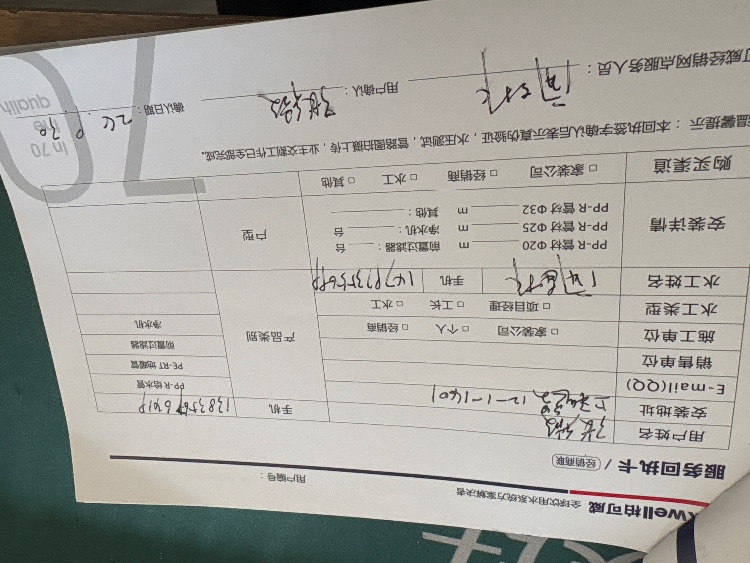 well柏可威 全球饮用水系统方案解决者
服务回执卡 / 经销商联 用户编号：
用户姓名
安装地址 12-1-1401 手机
E-mail(QQ)
销售单位
施工单位 □ 家装公司 □ 个人 □ 经销商
水工类型 □ 项目经理 □ 工长 □ 水工
水工姓名 手机
产品类别
PP-R 给水管
PE-RT 地暖管
前置过滤器
净水机
安装详情
PP-R 管材 Φ20 m 前置过滤器： 台
PP-R 管材 Φ25 m 净水机： 台
PP-R 管材 Φ32 m 其他：
户型
购买渠道 □ 家装公司 □ 经销商 □ 水工 □ 其他
温馨提示 ：本回执签字确认后表示真伪验证，水压测试，管路图拍摄上传，业主交割工作已全部完成。
可威经销网点服务人员： 用户确认： 确认日期：
70
In 70
qualit